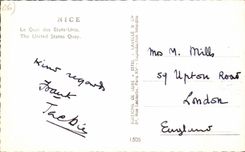 NICE
Le Quai des Etats-Unis.
The United States Quay.
Kind regards
Frank
Jackie
Mrs M. Mills
59 Upton Road
London
England
1505